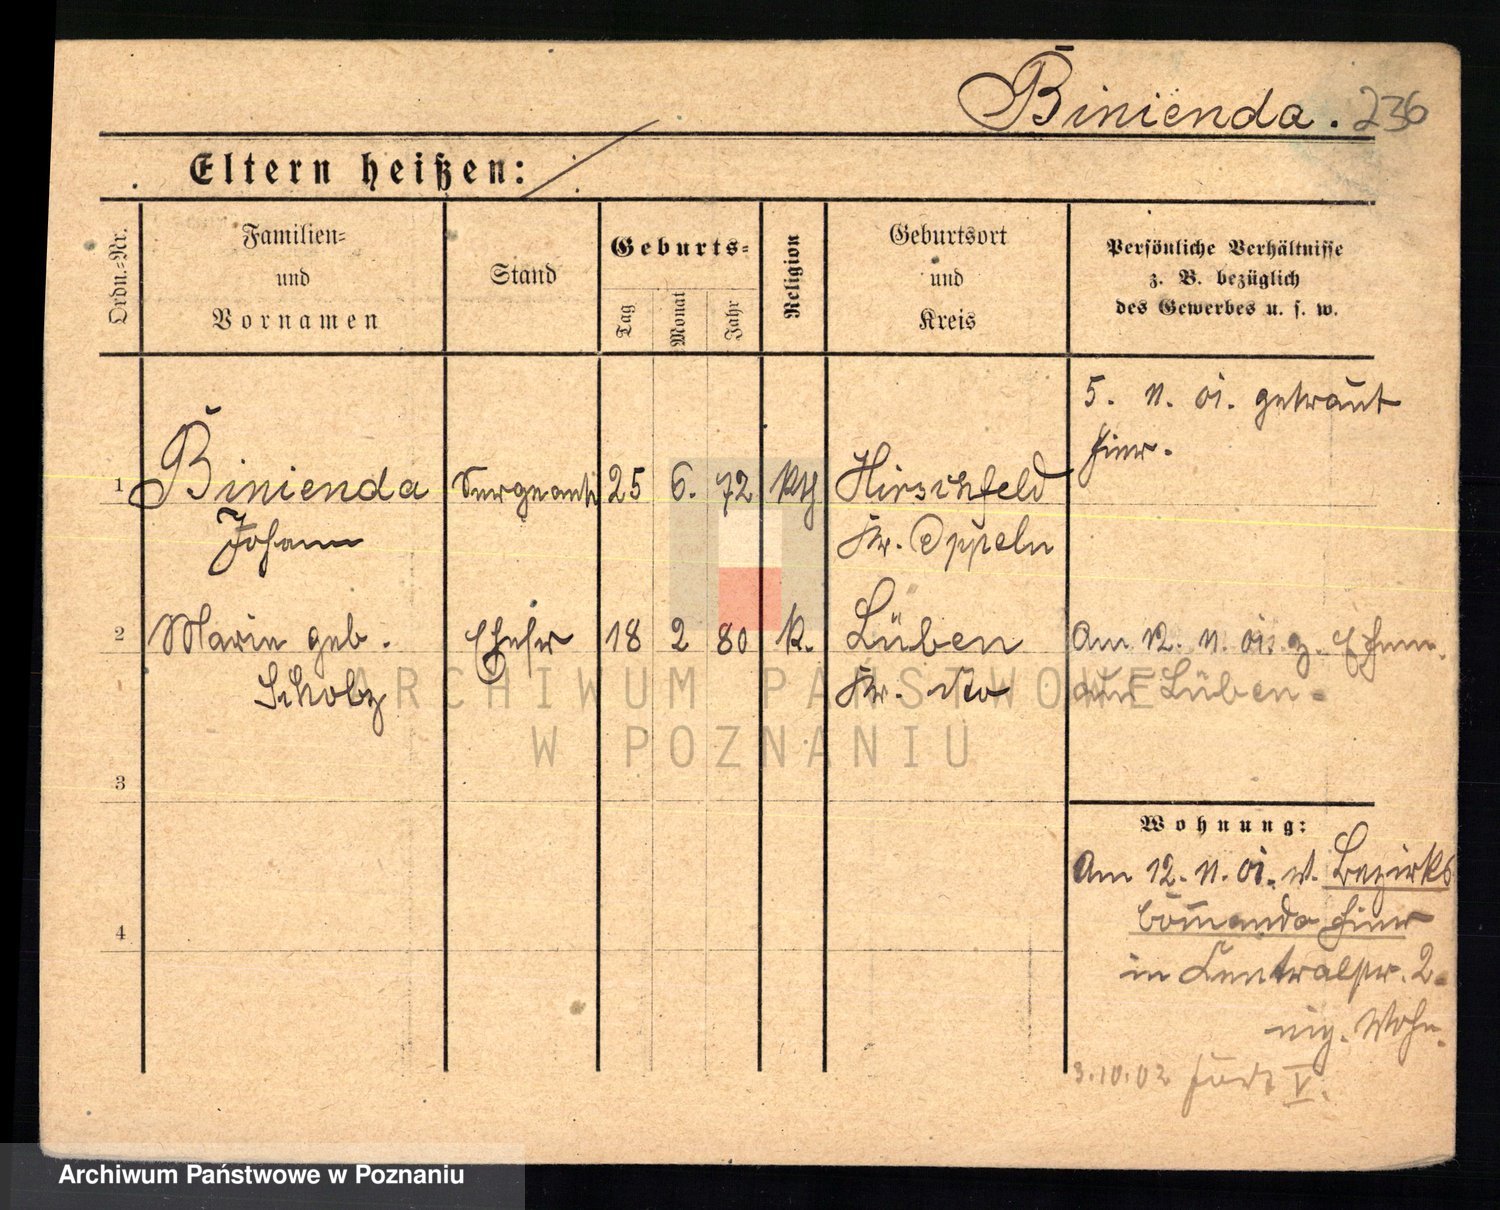 Binienda. 236
Eltern heißen:
Ordn.-Nr.
Familien-
und
Vornamen
Stand
Geburts-
Tag
Monat
Jahr
Religion
Geburtsort
und
Kreis
Persönliche Verhältnisse
z. B. bezüglich
des Gewerbes u. s. w.
5. 11. 01. getraut
hier.
1 Binienda Sergeant 25 6. 72 kth Hirschfeld
Johann Kr. Oppeln
2 Marie geb. Ehefr 18 2 80 k. Lüben Am 12. 11. 01. z. Ehem.
Scholz Kr. dto aus Lüben.
3
4
Wohnung:
Am 12. 11. 01. v. Bezirks
Commando hier
in Centralstr. 2
eig. Wohn.
3.10.02 Fort V.
ARCHIWUM PAŃSTWOWE
W POZNANIU
Archiwum Państwowe w Poznaniu